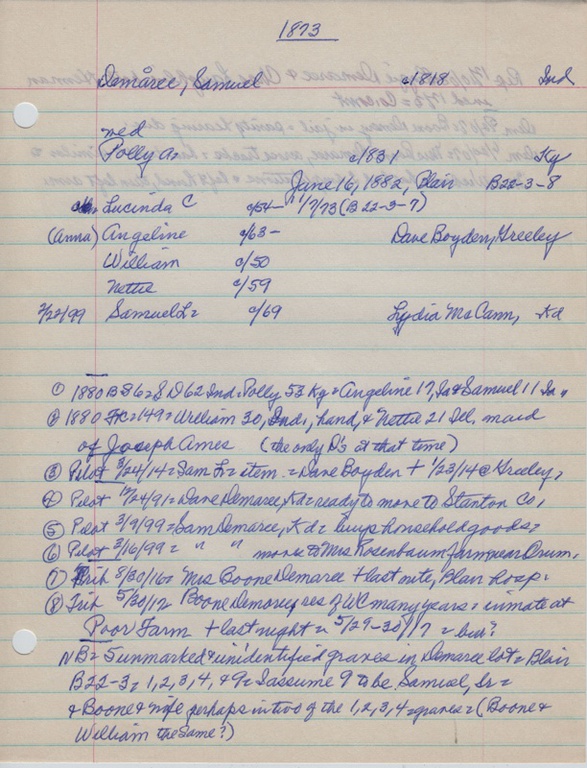 1873
Demaree, Samuel c/1818 Ind
med
Polly A= c/1831 Ky
June 16, 1882, Blair B22-3-8
Lucinda C c/54- 1/7/73 (B 22-3-7)
(Anna) Angeline c/63- Dave Boyden, Greeley
William c/50
Nettie c/59
2/22/99 Samuel L= c/69 Lydia McCann, Kd
① 1880 B S6= S D62 Ind. Polly 53 Ky = Angeline 17, Ia & Samuel 11 Ia =
② 1880 =149= William 30, Ind, hand, & Nettie 21 Ill. maid
of Joseph Ames (the only D's at that time)
③ Pilot 3/24/14 = Sam L = item = Dave Boyden + 1/23/14 @ Greeley,
④ Pilot 12/24/91 = Dave Demaree, Kd = ready to move to Stanton Co,
⑤ Pilot 3/9/99 = Sam Demaree, Kd = buys household goods =
⑥ Pilot 3/16/99 = " " moves to Mrs Rosenbaum farm near Orum,
⑦ Trib 8/30/16 = Mrs Boone Demaree + last nite, Blair hosp.
⑧ Trib 5/30/17 = Boone Demoree, res of WC many years = inmate at
Poor Farm + last night = 5/29-30/17 = bur?
NB = 5 unmarked & unidentified graves in Demaree lot = Blair
B22-3 = 1, 2, 3, 4, & 9 = I assume 9 to be Samuel, Sr =
& Boone & wife perhaps in two of the 1, 2, 3, 4 = graves = (Boone &
William the Same?)